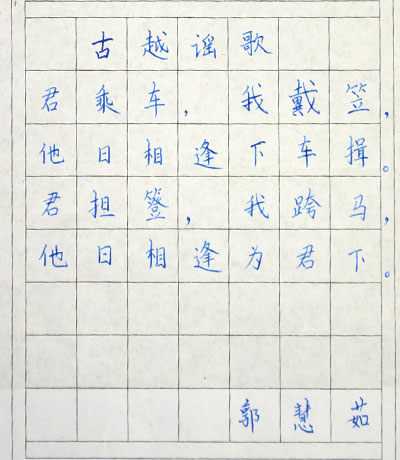 古越谣歌
君乘车，我戴笠，
他日相逢下车揖。
君担簦，我跨马，
他日相逢为君下。
郭慧茹